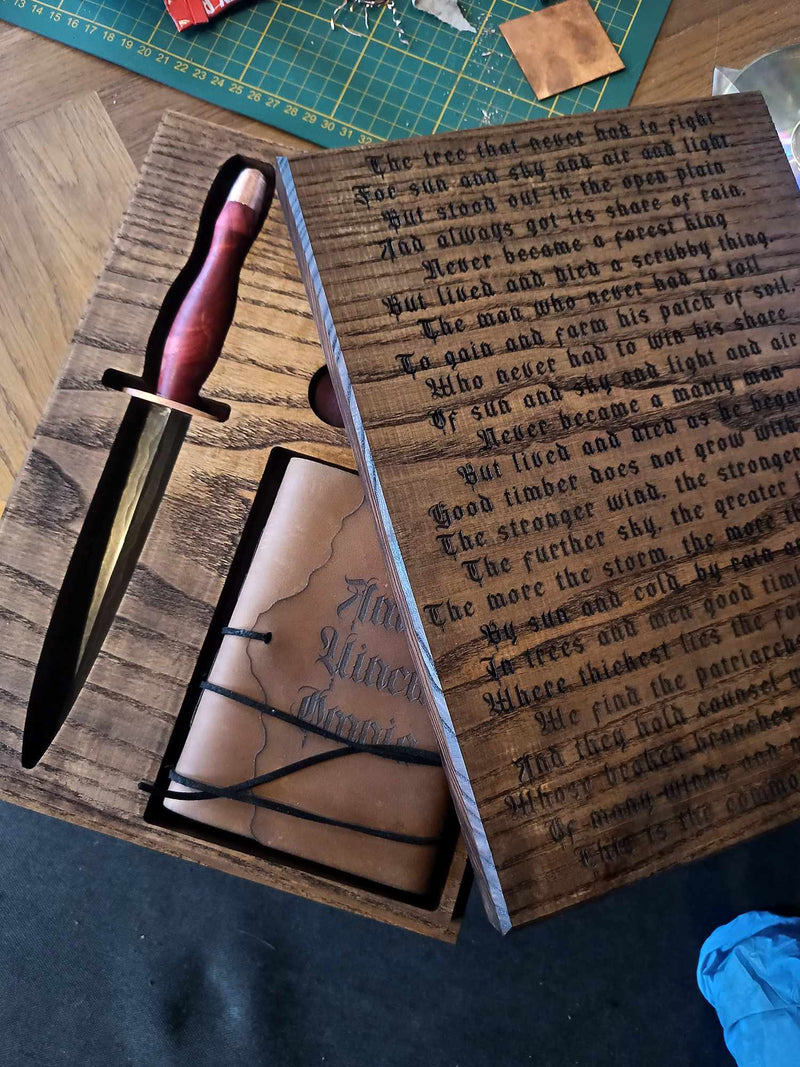 13 14 15 16 17 18 19 20 21 22 23 24 25 26 27 28 29 30 31 32
The tree that never had to fight
For sun and sky and air and light.
But stood out in the open plain
And always got its share of rain.
Never became a forest king
But lived and died a scrubby thing.
The man who never had to toil
To gain and farm his patch of soil.
Who never had to win his share
Of sun and sky and light and air
Never became a manly man
But lived and died as he began
Good timber does not grow with
The stronger wind, the stronger
The further sky, the greater
The more the storm, the more
By sun and cold, by rain
In trees and men good
Where thickest lies the
We find the patriarchs
And they hold counsel
Whose broken branches
Of many winds and
This is the